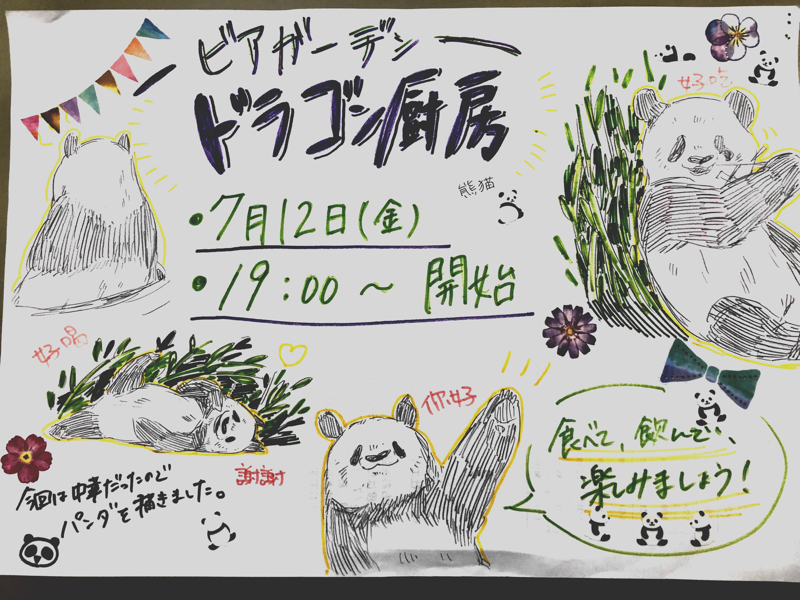 ビアガーデン
ドラゴン厨房
・7月12日(金)
・19:00〜 開始
熊猫
好吃
好喝
謝謝
你好
今回は中華だったので
パンダを描きました。
食べて、飲んで、
楽しみましょう!